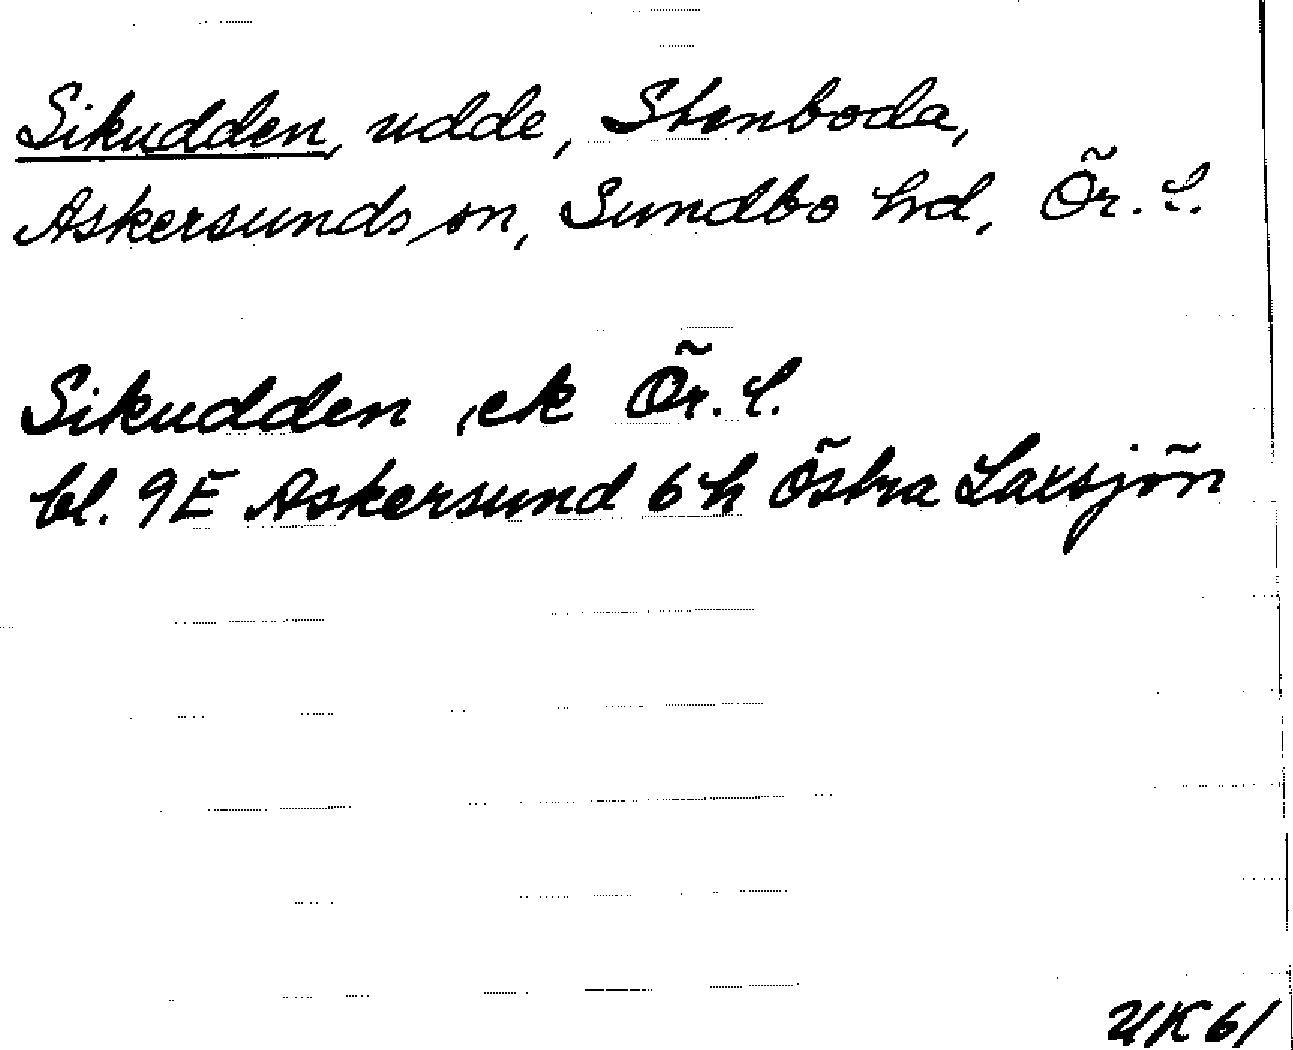 Sikudden, udde, Stenboda,
Askersunds sn, Sundbo hd, Ör. l.
Sikudden, ek Ör. l.
bl. 9E Askersund 6h Östra Laxsjön
UK61